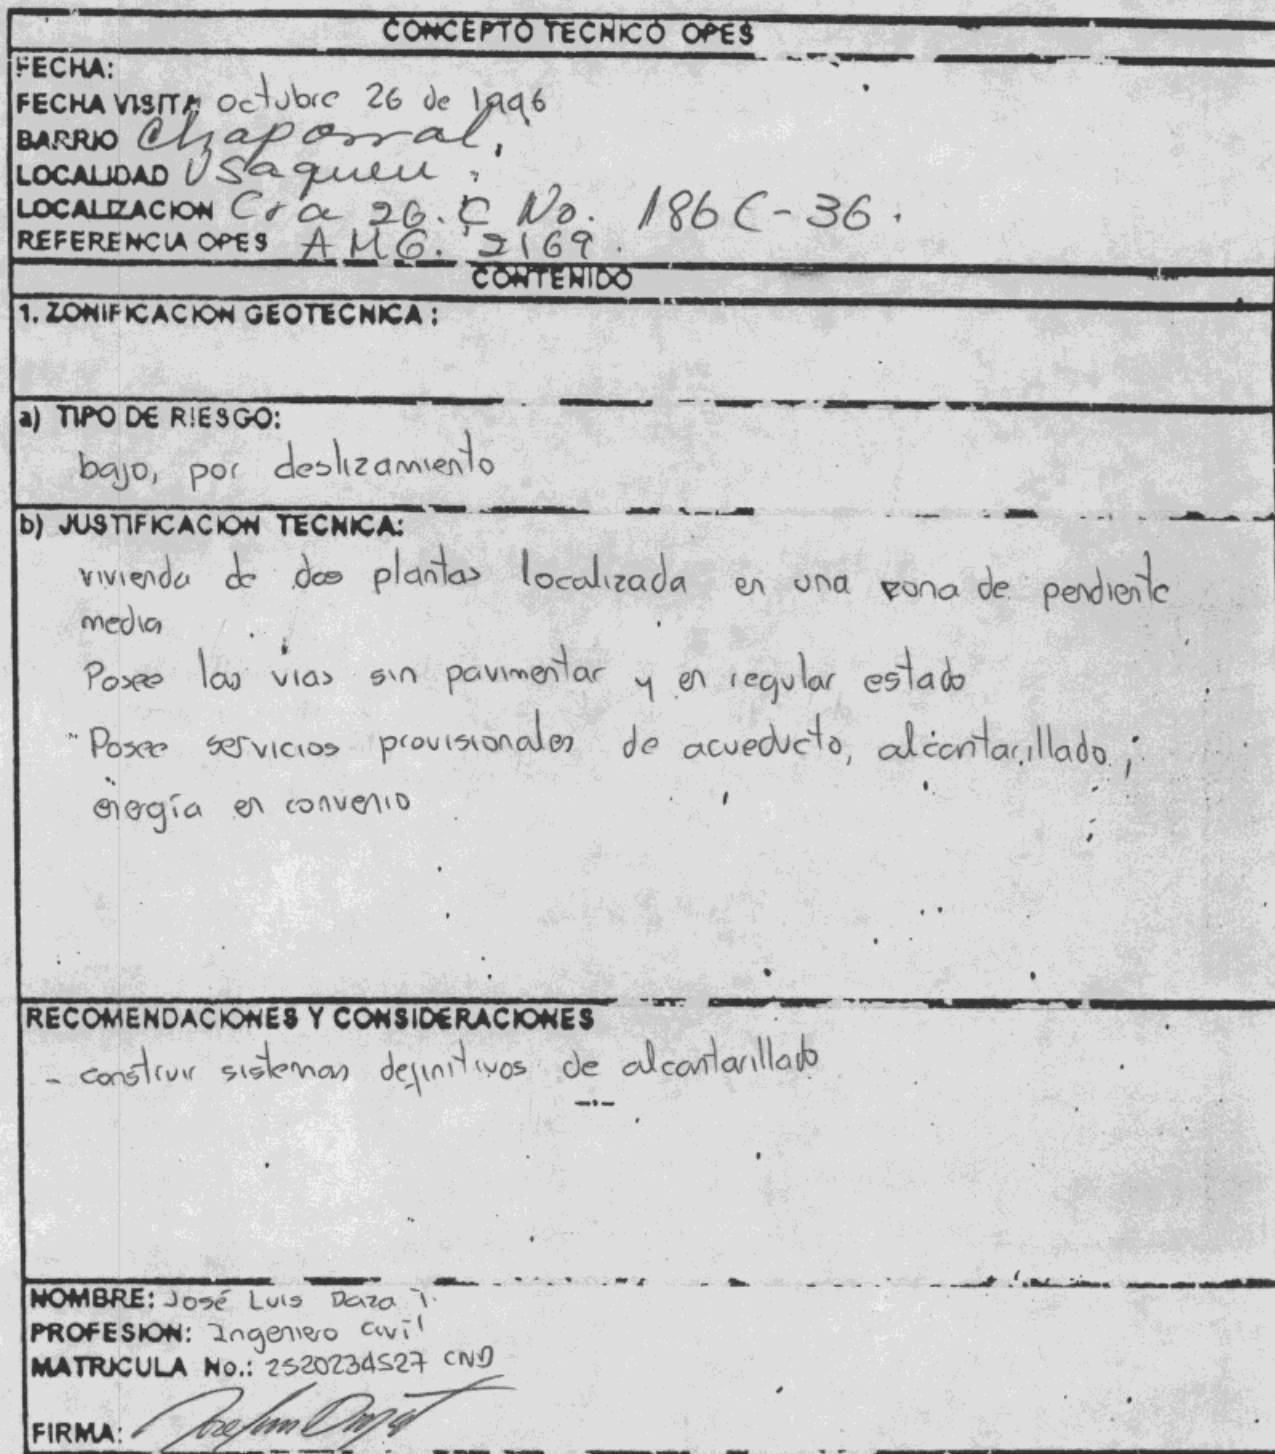 CONCEPTO TECNICO OPES
FECHA:
FECHA VISITA octubre 26 de 1996
BARRIO Chaparral.
LOCALIDAD Usaquen.
LOCALIZACION Cra 26.C No. 186C-36.
REFERENCIA OPES AMG. 2169.
CONTENIDO
1. ZONIFICACION GEOTECNICA:
a) TIPO DE RIESGO:
bajo, por deslizamiento
b) JUSTIFICACION TECNICA:
vivienda de dos plantas localizada en una zona de pendiente
media
Posee las vias sin pavimentar y en regular estado
Posee servicios provisionales de acueducto, alcantarillado;
energía en convenio
RECOMENDACIONES Y CONSIDERACIONES
- construir sistemas definitivos de alcantarillado
NOMBRE: José Luis Daza T.
PROFESION: Ingeniero Civil
MATRICULA No.: 2520234527 CND
FIRMA: